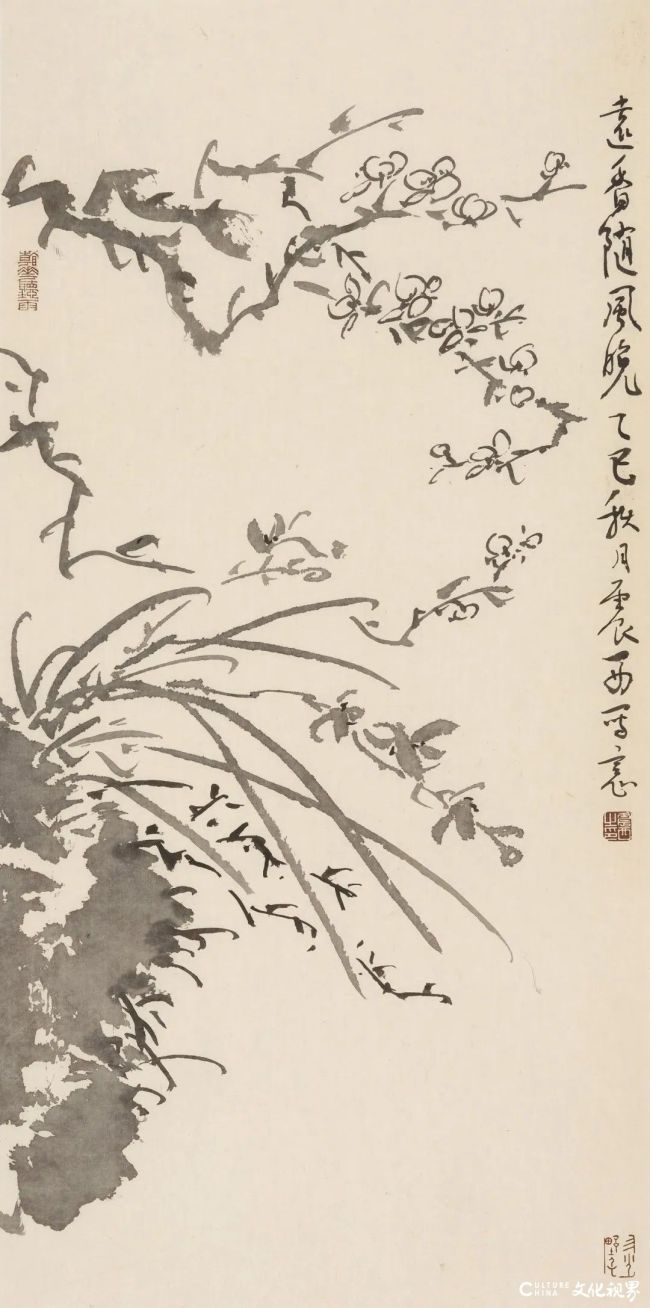 遠香随風晚 乙巳秋月震西写意
CULTURE
CHINA
文化视界